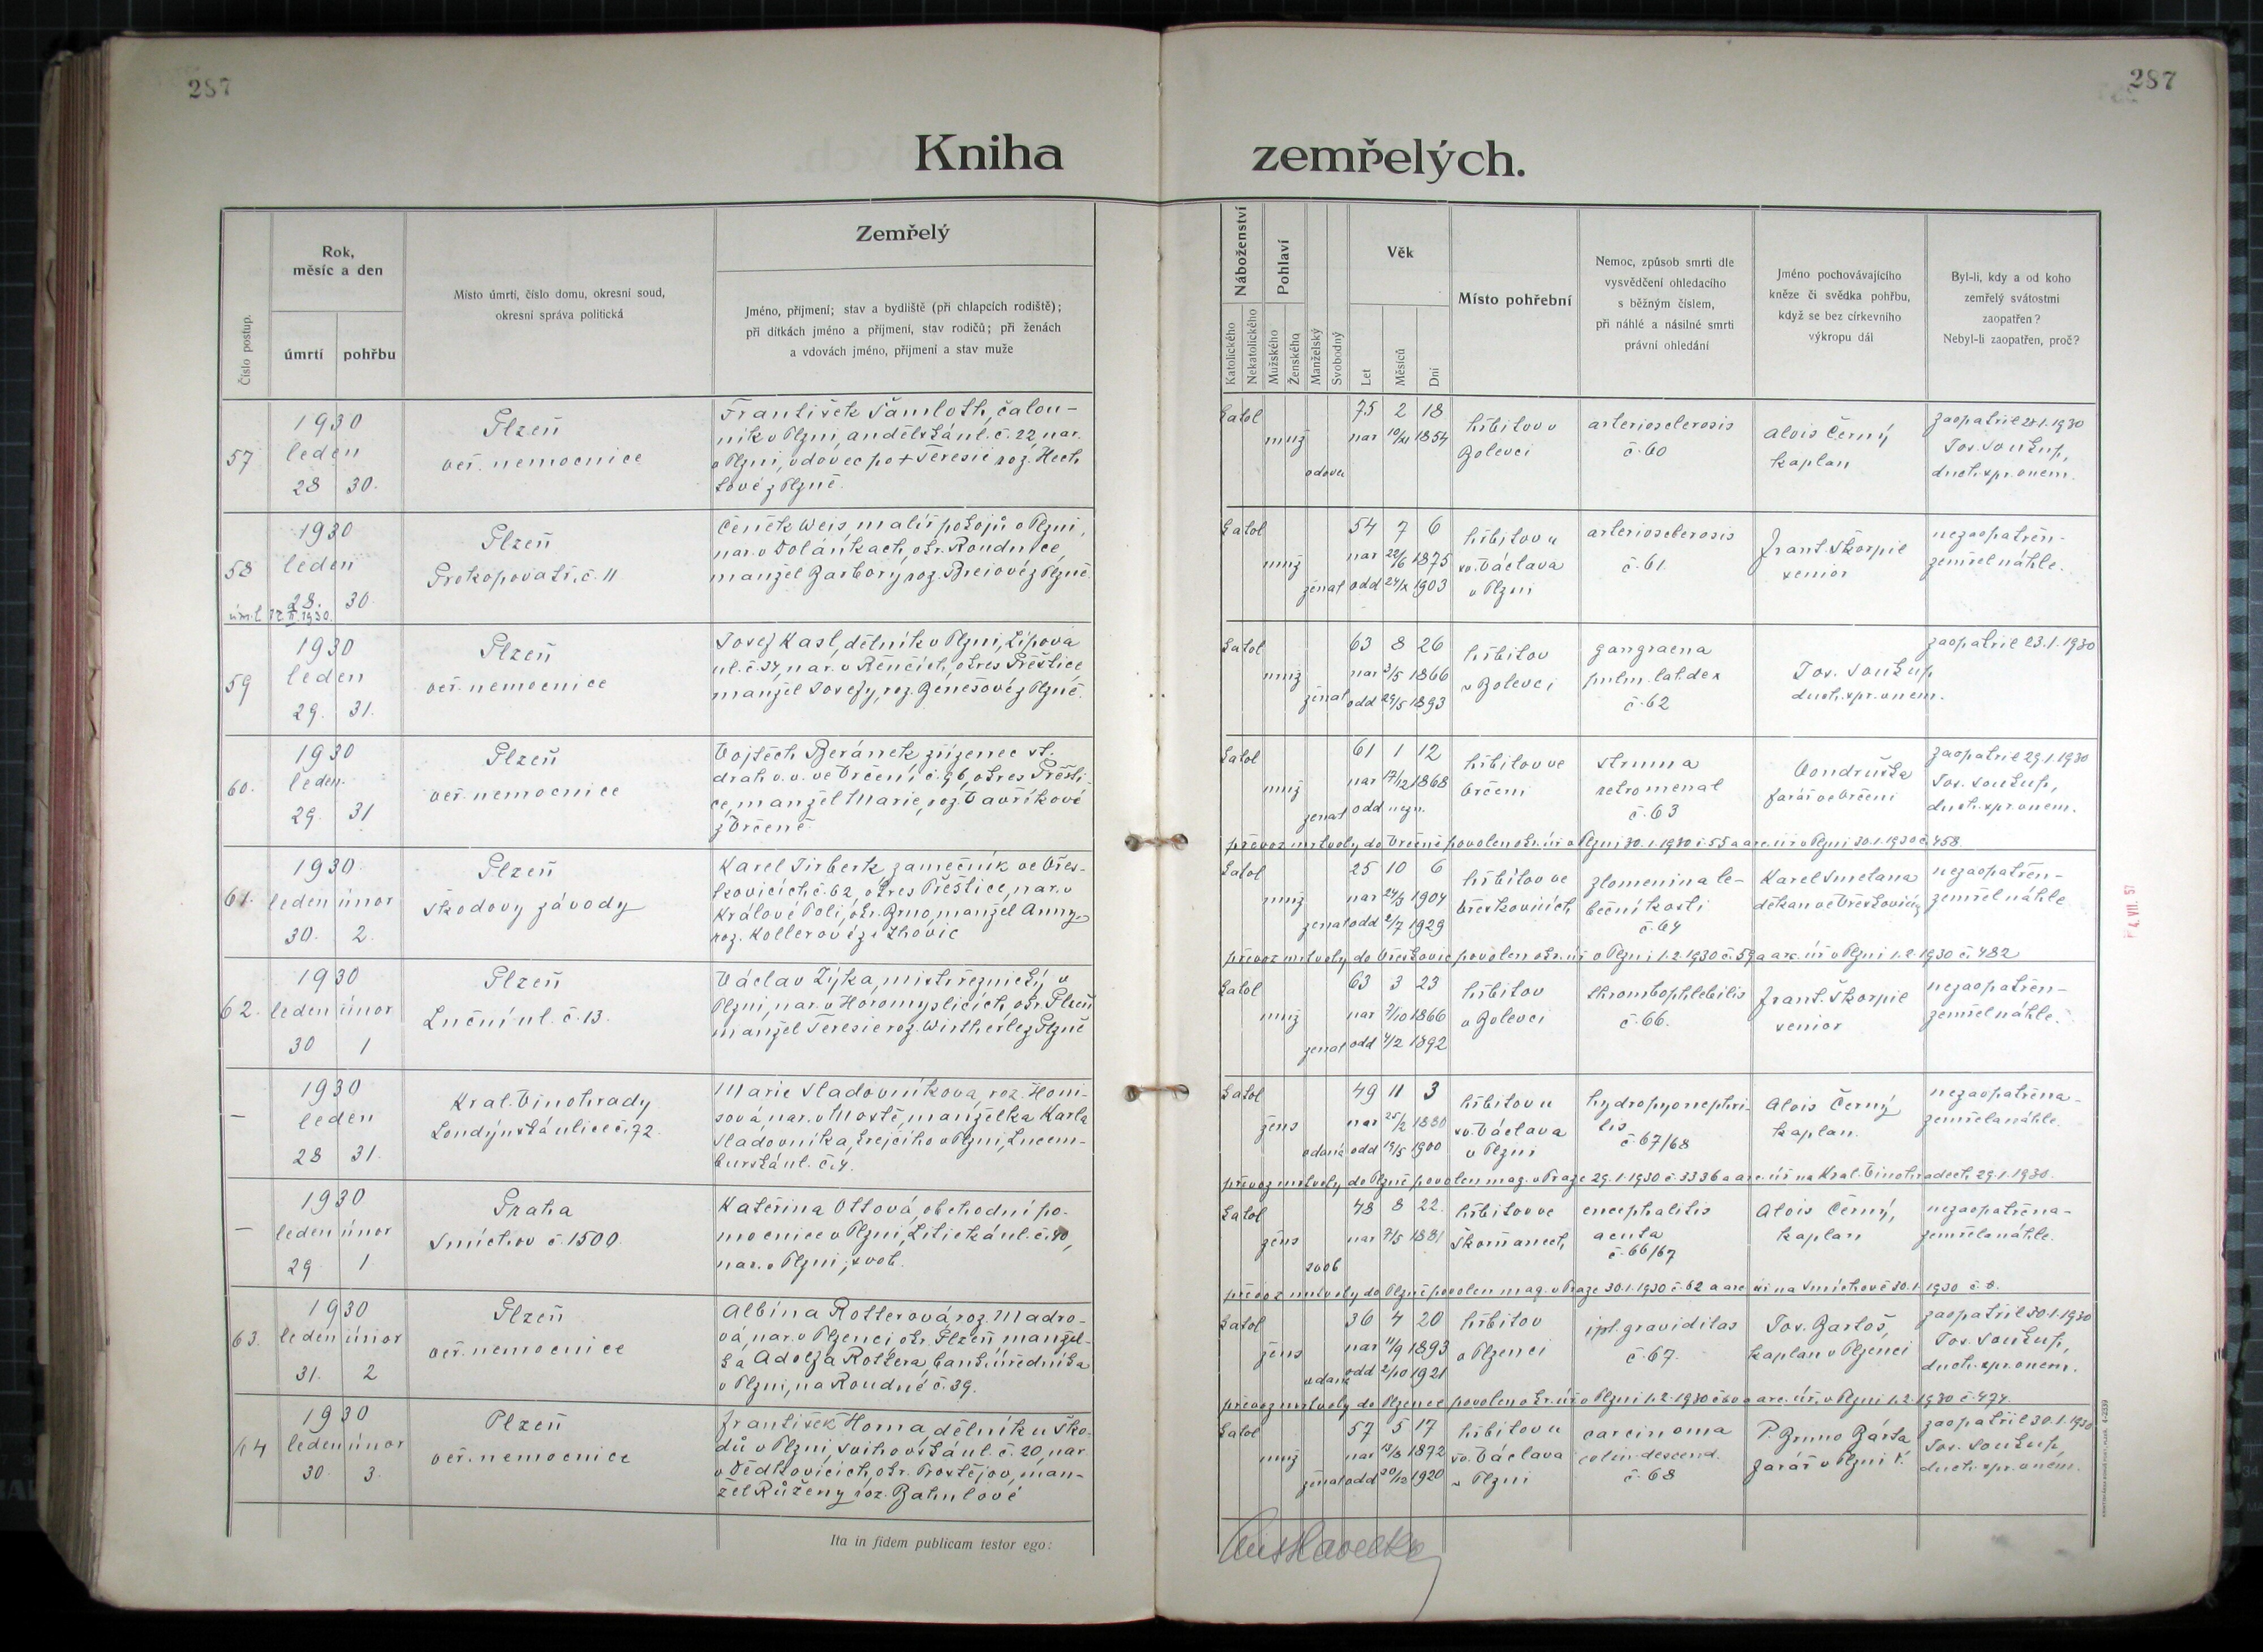 287
287
Kniha zemřelých.
Číslo postup.
Rok, měsíc a den
úmrtí
pohřbu
Místo úmrtí, číslo domu, okresní soud,
okresní správa politická
Zemřelý
Jméno, příjmení; stav a bydliště (při chlapcích rodiště);
při dítkách jméno a příjmení, stav rodičů; při ženách
a vdovách jméno, příjmení a stav muže
Náboženství
Katolického
Nekatolického
Pohlaví
Mužského
Ženského
Manželský
Svobodný
Věk
Let
Měsíců
Dní
Místo pohřební
Nemoc, způsob smrti dle
vysvědčení ohledacího
s běžným číslem,
při náhlé a násilné smrti
právní ohledání
Jméno pochovávajícího
kněze či svědka pohřbu,
když se bez církevního
výkropu dál
Byl-li, kdy a od koho
zemřelý svátostmi
zaopatřen?
Nebyl-li zaopatřen, proč?
57
1930
leden
28 30.
Plzeň
veř. nemocnice
František Šamloth, čalou-
ník v Plzni, andělská ul. č. 22, nar.
v Plzni, vdovec po + Teresii roz. Hech
lové z Plzně.
katol
muž
vdovec
75 2 18
nar 10/XI 1854
hřbitov v
Bolevci
arteriosclerosis
č. 60
Alois Černý
kaplan
zaopatřil 28.1.1930
Jos. Soukup,
duch. spr. v nem.
58
1930
leden
28. 30.
úmrt. 17.II.1930.
Plzeň
Prokopova tř. č. 11
Čeněk Weis, malíř pokojů v Plzni,
nar. v Dolánkách, okr. Roudnice,
manžel Barbory, roz. Breiové z Plzně.
katol
muž
ženat
54 7 6
nar 22/6 1875
odd 24/X 1903
hřbitov u
sv. Václava
v Plzni
arteriosclerosis
č. 61.
Frant. Škorpil
senior
nezaopatřen-
zemřel náhle.
59
1930
leden
29. 31.
Plzeň
veř. nemocnice
Josef Kasl, dělník v Plzni, Lípová
ul. č. 37, nar. v Řenčích, okres Přeštice
manžel Josefy, roz. Benešové z Plzně.
katol
muž
ženat
63 8 26
nar 3/5 1866
odd 29/5 1893
hřbitov
v Bolevci
gangraena
pulm. lat. dex
č. 62
Jos. Soukup
duch. spr. v nem.
zaopatřil 23.1.1930
60.
1930
leden.
29. 31
Plzeň
veř. nemocnice
Vojtěch Beránek, zřízenec st.
drah v. v. ve Vrčeni č. 96, okres Přešti-
ce, manžel Marie, roz. Vavříkové
z Vrčeně.
katol
muž
ženat
61 1 12
nar 17/12 1868
odd nezn.
hřbitov ve
Vrčeni
struma
retromenal
č. 63
Vondruška
farář ve Vrčeni
zaopatřil 29.1.1930
Jos. Soukup,
duch. spr. v nem.
převoz mrtvoly do Vrčeně povolen okr. úř. v Plzni 30.1.1930 č. 55 a arc. úř. v Plzni 30.1.1930 č. 458.
61.
1930.
leden únor
30. 2.
Plzeň
Škodovy závody
Karel Jirberk, zámečník ve Vřes-
kovicích č. 62, okres Přeštice, nar. v
Králově Poli, okr. Brno, manžel Anny
roz. Kollerové ze Lhovic
katol
muž
ženat
25 10 6
nar 24/3 1904
odd 2/7 1929
hřbitov ve
Vřeskovicích
zlomenina le-
beční kosti
č. 64
Karel Smetana
děkan ve Vřeskovicích
nezaopatřen-
zemřel náhle
převoz mrtvoly do Vřeskovic povolen okr. úř. v Plzni 1.2.1930 č. 59 a arc. úř. v Plzni 1.2.1930 č. 482
62.
1930
leden únor
30 1
Plzeň
Luční ul. č. 13.
Václav Zýka, mistr řeznický v
Plzni, nar. v Horomyslicích, okr. Plzeň
manžel Teresie roz. Wirtherle z Plzně
katol
muž
ženat
63 3 23
nar 7/10 1866
odd 4/2 1892
hřbitov
v Bolevci
thrombophlebitis
č. 66.
Frant. Škorpil
senior
nezaopatřen-
zemřel náhle.
–
1930
leden
28 31.
Král. Vinohrady
Londýnská ulice č. 72.
Marie Sladovníková, roz. Honi-
sová, nar. v Mostě, manželka Karla
Sladovníka, krejčího v Plzni, Lucem-
burská ul. č. 4.
katol
žens
vdaná
49 11 3
nar 25/2 1880
odd 19/5 1900
hřbitov u
sv. Václava
v Plzni
hydropyonephri-
tis
č. 67/68
Alois Černý
kaplan.
nezaopatřena-
zemřela náhle.
převoz mrtvoly do Plzně povolen mag. v Praze 29.1.1930 č. 3336 a arc. úř. na Král. Vinohradech 29.1.1930.
–
1930
leden únor
29 1
Praha
Smíchov č. 1500
Kateřina Ottová, obchodní po-
mocnice v Plzni, Litická ul. č. 40,
nar. v Plzni, svob.
katol
žens
svob
48 8 22.
nar 7/5 1881
hřbitov ve
Škorňanech
encephalitis
acuta
č. 66/67
Alois Černý,
kaplan
nezaopatřena-
zemřela náhle.
převoz mrtvoly do Plzně povolen mag. v Praze 30.1.1930 č. 62 a arc. úř. na Smíchově 30.1.1930 č. 8.
63.
1930
leden únor
31. 2
Plzeň
veř. nemocnice
Albína Rotterová roz. Madro-
vá, nar. v Plzenci, okr. Plzeň, manžel-
ka Adolfa Rottera, bank. úředníka
v Plzni, na Roudné č. 39.
katol
žens
vdaná
36 4 20
nar 11/9 1893
odd 2/10 1921
hřbitov
v Plzenci
ipt. graviditas
č. 67.
Jos. Bartoš,
kaplan v Plzenci
zaopatřil 30.1.1930
Jos. Soukup,
duch. spr. v nem.
převoz mrtvoly do Plzence povolen okr. úř. v Plzni 1.2.1930 č. 60 a arc. úř. v Plzni 1.2.1930 č. 474.
64
1930
leden únor
30. 3.
Plzeň
veř. nemocnice
František Homa, dělník u Ško-
dů v Plzni, Švihovská ul. č. 20, nar.
v Dědkovicích, okr. Prostějov, man-
žel Růženy roz. Bahulové
katol
muž
ženat
57 5 17
nar 13/8 1872
odd 30/12 1920
hřbitov u
sv. Václava
v Plzni
carcinoma
colin descend.
č. 68
P. Bruno Bárta
farář v Plzni ř.
zaopatřil 30.1.1930
Jos. Soukup,
duch. spr. v nem.
Ita in fidem publicam testor ego:
4. VII. 57